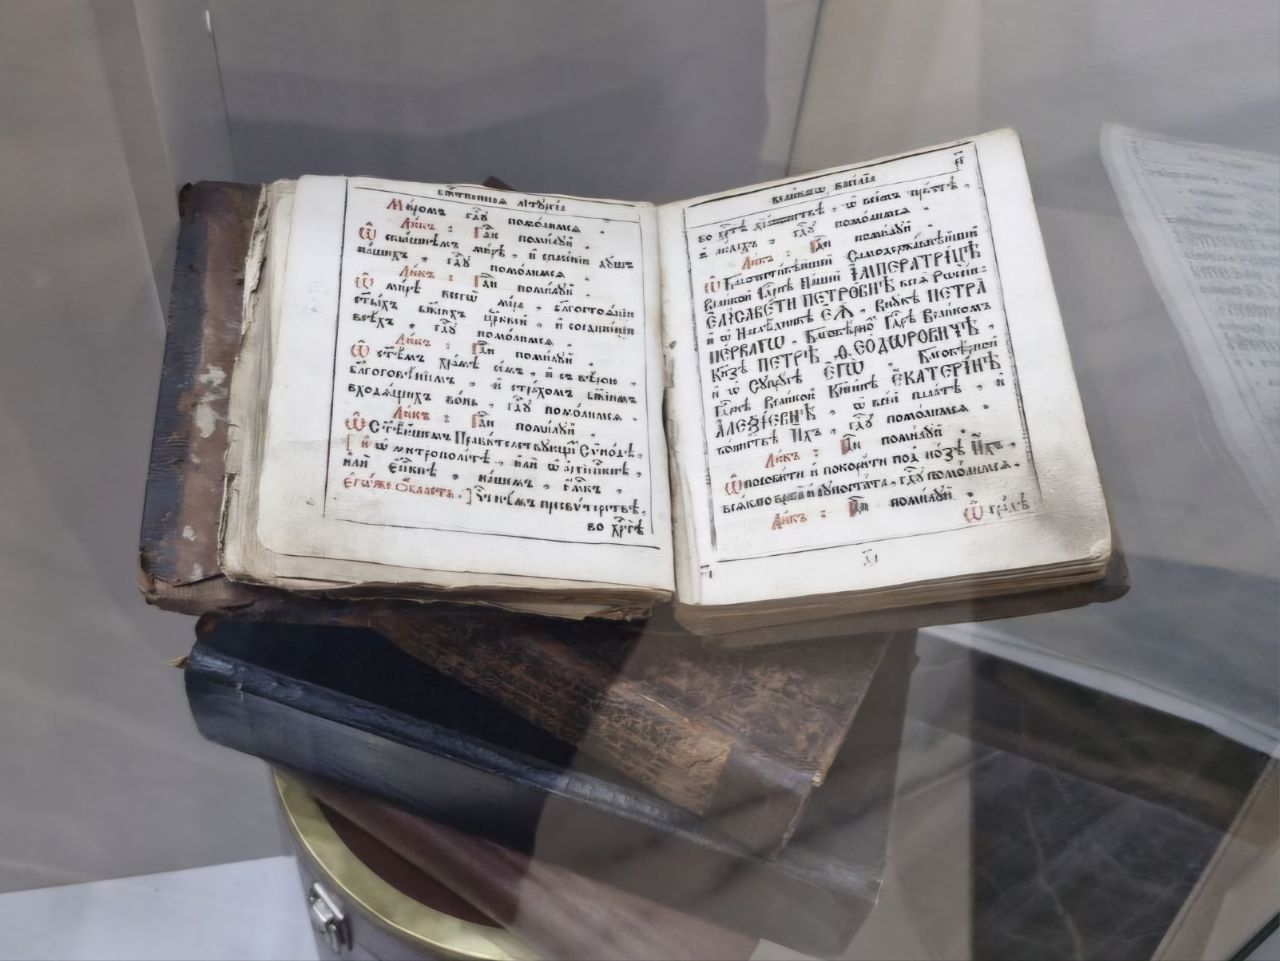 бж҃твеннаѧ лїтꙋргїа
Мѵромъ гдⷭ҇ꙋ помолимсѧ
Ликъ : Гдⷭ҇и помилꙋй .
Ѿ свышнѣмъ мирѣ , и спасенїи дꙋшъ
нашихъ , гдⷭ҇ꙋ помолимсѧ
Ликъ : Гдⷭ҇и помилꙋй .
Ѿ мирѣ всегѡ мїра , благостоѧнїи
ст҃ыхъ бж҃їихъ цр҃квей , и соединенїи
всѣхъ , гдⷭ҇ꙋ помолимсѧ
Ликъ : Гдⷭ҇и помилꙋй .
Ѿ ст҃ѣмъ храмѣ семъ , и съ вѣрою ,
благоговѣнїемъ , и страхомъ бж҃їимъ
входѧщихъ вонь , гдⷭ҇ꙋ помолимсѧ .
Ликъ : Гдⷭ҇и помилꙋй .
Ѿ Ст҃ѣйшемъ Правителствꙋющ Сѵнодѣ ,
[ и ѡ митрополїтѣ , или ѡ архїепⷭ҇кпѣ ,
или еп҃кпѣ , нашемъ , им҃ркъ ,
Егѡже Область . ] чⷭ҇тнѣмъ пресвѵтерствѣ ,
во хрⷭ҇тѣ
великагѡ васілїа
во хрⷭ҇тѣ дїаконствѣ , ѡ всемъ причтѣ ,
и людехъ , гдⷭ҇ꙋ помолимсѧ .
Ликъ : Гдⷭ҇и помилꙋй .
Ѿ Бл҃гочестивѣйшей Самодержавнѣйшей
Великой Гдⷭ҇рнѣ Нашей ІМПЕРАТРИЦѢ
ЕЛІСАВЕТѢ ПЕТРОВНѢ всеѧ Рѡссїи :
и ѡ Наслѣдникѣ ЕѦ , Внꙋкѣ ПЕТРА
ПЕРВАГѠ , Бл҃говѣрномъ Гдⷭ҇рѣ Великомъ
Кнѧзѣ ПЕТРѢ ѲЕОДѠРОВИЧѢ ,
и ѡ Сꙋпрꙋгѣ ЕГѠ Бл҃говѣрной
Гдⷭ҇рнѣ Великой Кнѧгинѣ ЕКАТЕРИНѢ
АЛЕѮІЕВНѢ , ѡ всей палатѣ , и
воинствѣ Ихъ , гдⷭ҇ꙋ помолимсѧ .
Ликъ : Гдⷭ҇и помилꙋй .
Ѿ пособити и покорити под нозѣ Ихъ ,
всѧкаго врага и сꙋпостата , гдⷭ҇ꙋ помолимсѧ .
Ликъ : Гдⷭ҇и помилꙋй
Ѿ градѣ